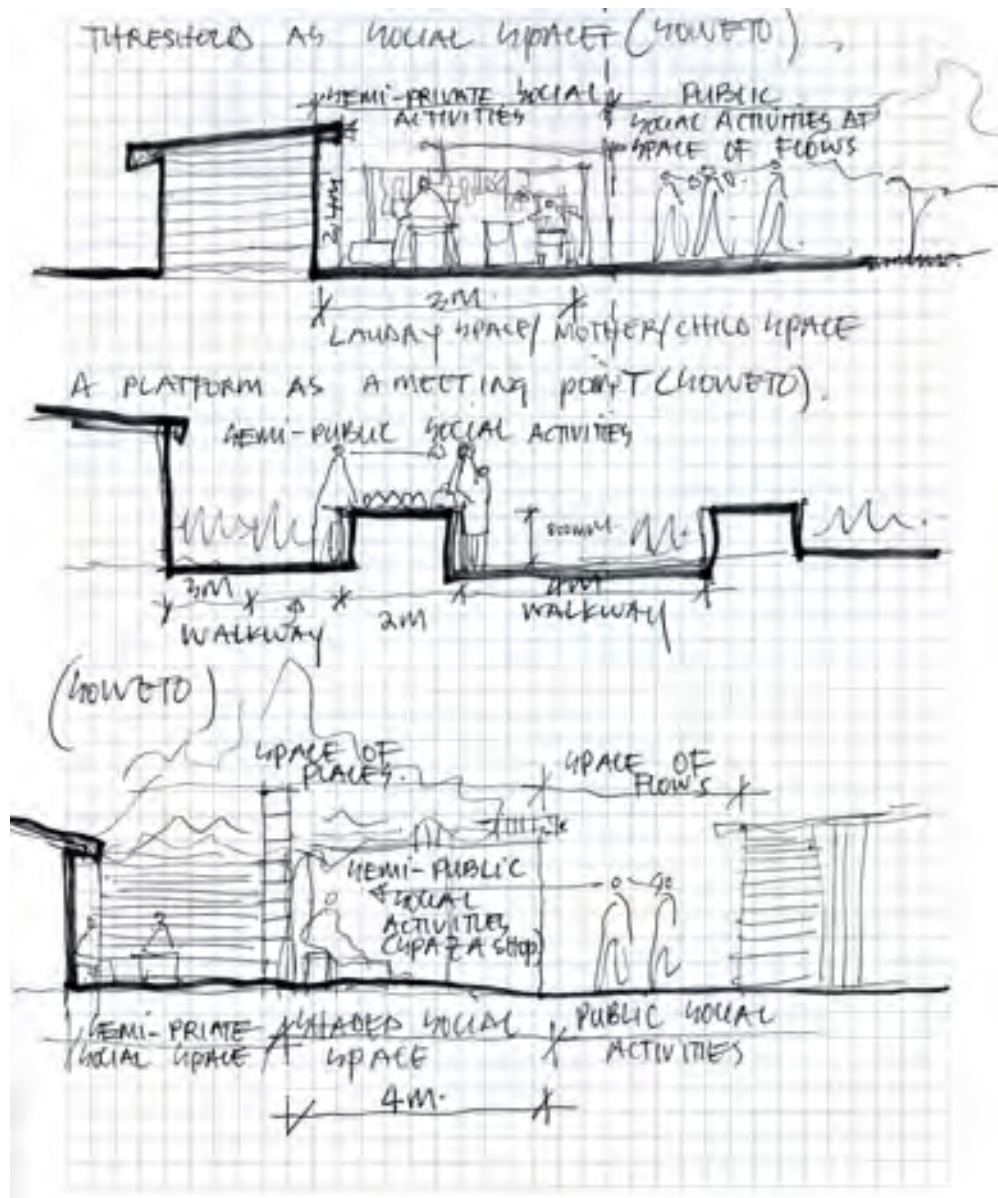 THRESHOLD AS SOCIAL SPACE (SOWETO)
SEMI-PRIVATE SOCIAL
ACTIVITIES
PUBLIC
SOCIAL ACTIVITIES AT
SPACE OF FLOWS
2,4M
3M.
LAUDRY SPACE/ MOTHER/CHILD SPACE
A PLATFORM AS A MEETING POINT (SOWETO).
SEMI-PUBLIC SOCIAL ACTIVITIES
800MM.
3M
WALKWAY
2M
4M
WALKWAY
(SOWETO)
SPACE OF
PLACES.
SPACE OF
FLOWS
SEMI-PUBLIC
SOCIAL
ACTIVITIES
(SPAZA SHOP)
SEMI-PRIATE
SOCIAL SPACE
SHADED SOCIAL
SPACE
PUBLIC SOCIAL
ACTIVITIES
4M.